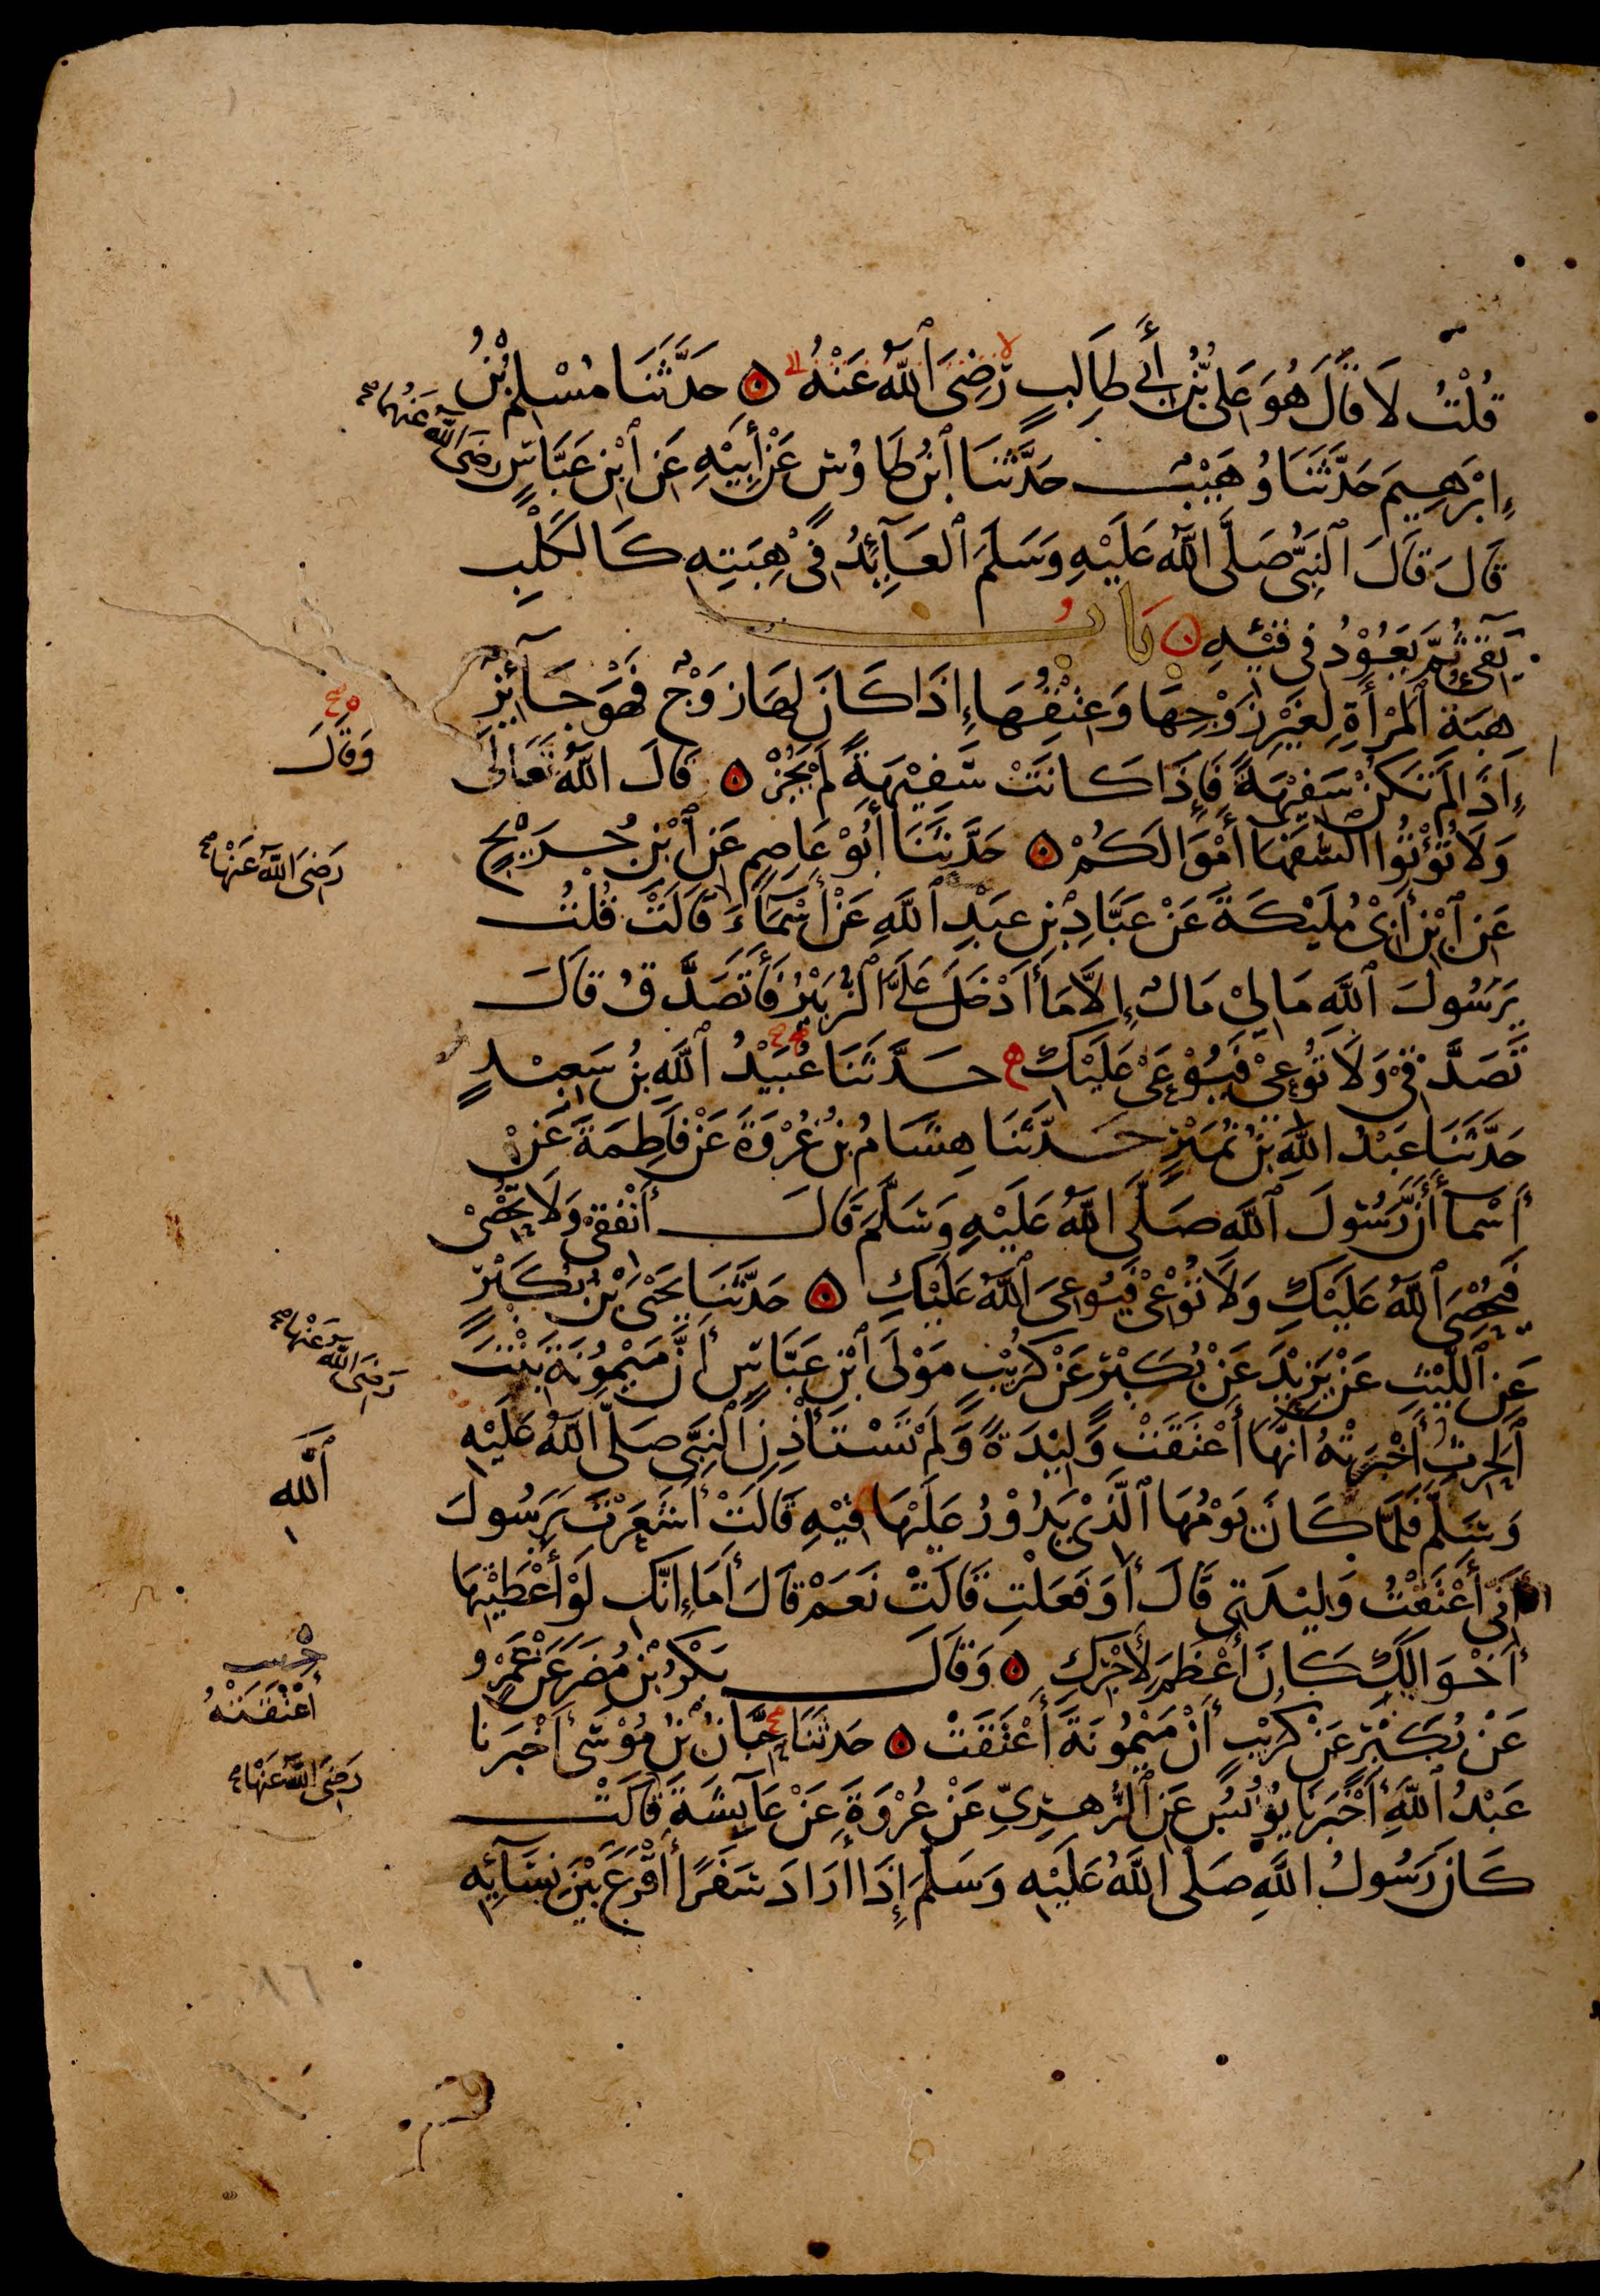 قُلْتُ لَا قَالَ هُوَ عَلِىُّ بْنُ أَبِي طَالِبٍ رَضِيَ ٱللَّهُ عَنْهُ ۞ حَدَّثَنَا مُسْلِمُ بْنُ
إِبْرَهِيمَ حَدَّثَنَا وُهَيْبٌ حَدَّثَنَا ٱبْنُ طَاوُسٍ عَنْ أَبِيْهِ عَنِ ٱبْنِ عَبَّاسٍ رَضِيَ اللَّهُ عَنْهُمَا صح
قَالَ قَالَ ٱلنَّبِىُّ صَلَّى ٱللَّهُ عَلَيْهِ وَسَلَّمَ ٱلعَآئِدُ فِى هِبَتِهِ كَالكَلْبِ
يَقِىْءُ ثُمَّ يَعُوْدُ فِي قَيْئِهِ ۞ بَابُ
هِبَةِ ٱلمَرْأَةِ لِغَيْرِ زَوْجِهَا وَعِتْقُهَا إِذَا كَانَ لَهَا زَوْجٌ فَهُوَ جَآئِزٌ
إِذَا لَمْ تَكُنْ سَفِيْهَةً فَإِذَا كَانَتْ سَفِيْهَةً لَمْ يَجُزْ ۞ قَالَ اللَّهُ تَعَالَى
وَقَالَ
وَلَا تُؤْتُوا ٱلسُّفَهَا أَمْوَالَكُمْ ۞ حَدَّثَنَا أَبُوْ عَاصِمٍ عَنِ ٱبْنِ جُرَيْجٍ
رَضِىَ اللَّهُ عَنْهَا صح
عَنِ ٱبْنِ أَبِىْ مُلَيْكَةَ عَنْ عَبَّادِ بْنِ عَبْدِ ٱللَّهِ عَنْ أَسْمَآءَ قَالَتْ قُلْتُ
يَرَسُولَ ٱللَّهِ مَا لِيْ مَالٌ إِلَّا مَا أَدْخَلَ عَلَىَّ ٱلزُّبَيْرُ فَأَتَصَدَّقُ قَالَ
تَصَدَّقِىْ وَلَا تُوْعِىْ فَيُوْعَىْ عَلَيْكِ حَدَّثَنَا عُبَيْدُ ٱللَّهِ بْنُ سَعِيْدٍ
حَدَّثَنَا عَبْدُ اللَّهِ بْنُ نُمَيْرٍ حَدَّثَنَا هِشَامُ بْنُ عُرْوَةَ عَنْ فَاطِمَةَ عَنْ
أَسْمَآ أَنَّ رَسُولَ ٱللَّهِ صَلَّى ٱللَّهُ عَلَيْهِ وَسَلَّمَ قَالَ أَنْفِقِىْ وَلَا تُحْصِىْ
فَيُحْصِىَ ٱللَّهُ عَلَيْكِ وَلَا تُوْعِىْ فَيُوعِىَ ٱللَّهُ عَلَيْكِ ۞ حَدَّثَنَا يَحْيَى بْنُ بُكَيْرٍ
عَنِ ٱللَّيْثِ عَنْ يَزِيْدَ عَنْ بُكَيْرٍ عَنْ كُرَيْبٍ مَوْلَى ٱبْنِ عَبَّاسٍ أَنَّ مَيْمُوْنَةَ بِنْتَ
رَضِىَ اللَّهُ عَنْهَا صح
ٱلْحٰرِثِ أَخْبَرَتْهُ أَنَّهَا أَعْتَقَتْ وَلِيْدَةً وَلَمْ تَسْتَأْذِنِ ٱلنَّبِىَّ صَلَّى ٱللَّهُ عَلَيْهِ
وَسَلَّمَ فَلَمَّا كَانَ يَوْمُهَا ٱلَّذِىْ يَدُوْرُ عَلَيْهَا فِيْهِ قَالَتْ أَشَعَرْتَ يَرَسُولَ
ٱللَّه
أَنِّى أَعْتَقْتُ وَلِيْدَتِى قَالَ أَوَفَعَلْتِ قَالَتْ نَعَمْ قَالَ أَمَا إِنَّكِ لَوْ أَعْطَيْتِهَا
أَخْوَالَكِ كَانَ أَعْظَمَ لِأَجْرِكِ ۞ وَقَالَ بَكْرُ بْنُ مُضَرَ عَنْ عَمْرٍو
عَنْ بُكَيْرٍ عَنْ كُرَيْبٍ أَنَّ مَيْمُونَةَ أَعْتَقَتْ ۞ حَدَّثَنَا حِبَّانُ بْنُ مُوْسَى أَخْبَرَنَا
أَعْتَقَتْهُ
عَبْدُ ٱللَّهِ أَخْبَرَنَا يُوْنُسُ عَنِ ٱلزُّهْرِيِّ عَنْ عُرْوَةَ عَنْ عَآئِشَةَ قَالَتْ
رَضِىَ اللَّهُ عَنْهَا صح
كَانَ رَسُولُ اللَّهِ صَلَّى اللَّهُ عَلَيْهِ وَسَلَّمَ إِذَا أَرَادَ سَفَرًا أَقْرَعَ بَيْنَ نِسَآئِهِ